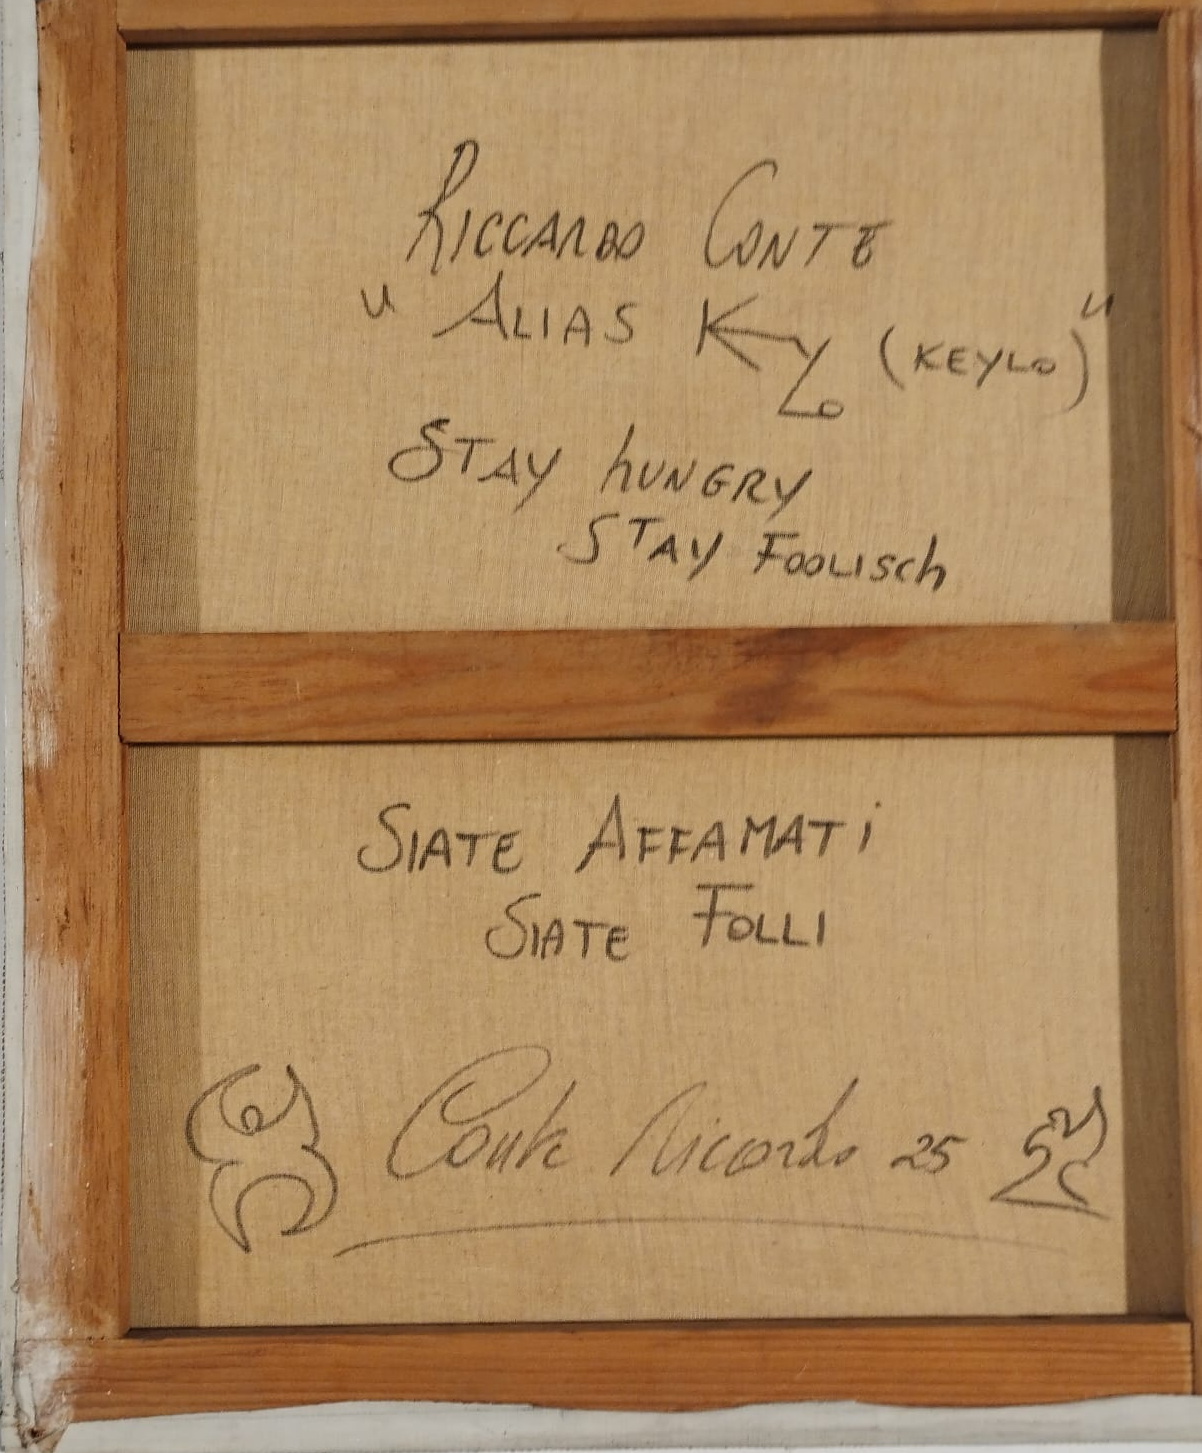 RICCARDO CONTE
"ALIAS KYLO (KEYLO)"
STAY hUNGRY
STAY FOOLISCh
SIATE AFFAMATi
SIATE FOLLI
Conte Riccardo 25